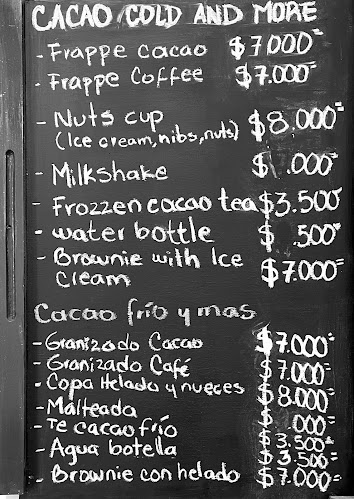 CACAO COLD AND MORE
- Frappe cacao $7000=
- Frappe Coffee $7.000=
- Nuts cup
(Ice cream, nibs, nuts) $8.000=
- Milkshake $ .000=
- Frozzen cacao tea $3.500=
- water bottle $ .500=
- Brownie with Ice
Cream $7.000=
Cacao frío y mas
- Granizado Cacao $7.000=
- Granizado Café $7.000=
- Copa Helado y nueces $8.000=
- Malteada $ .000=
- Te cacao frío $3.500=
- Agua botella $3.500=
- Brownie con helado $7.000=